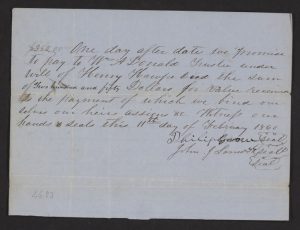 One day after date we promise
to pay to Wm A Donald Trustee under
Will of Henry the Sum
of Two hundred and fifty Dollars for value received
to the payment of which we bind our
selves our heirs assigns &c Witness our
hands & Seals this 11th day of February 1860
Philip Seal
John Seal
Seal